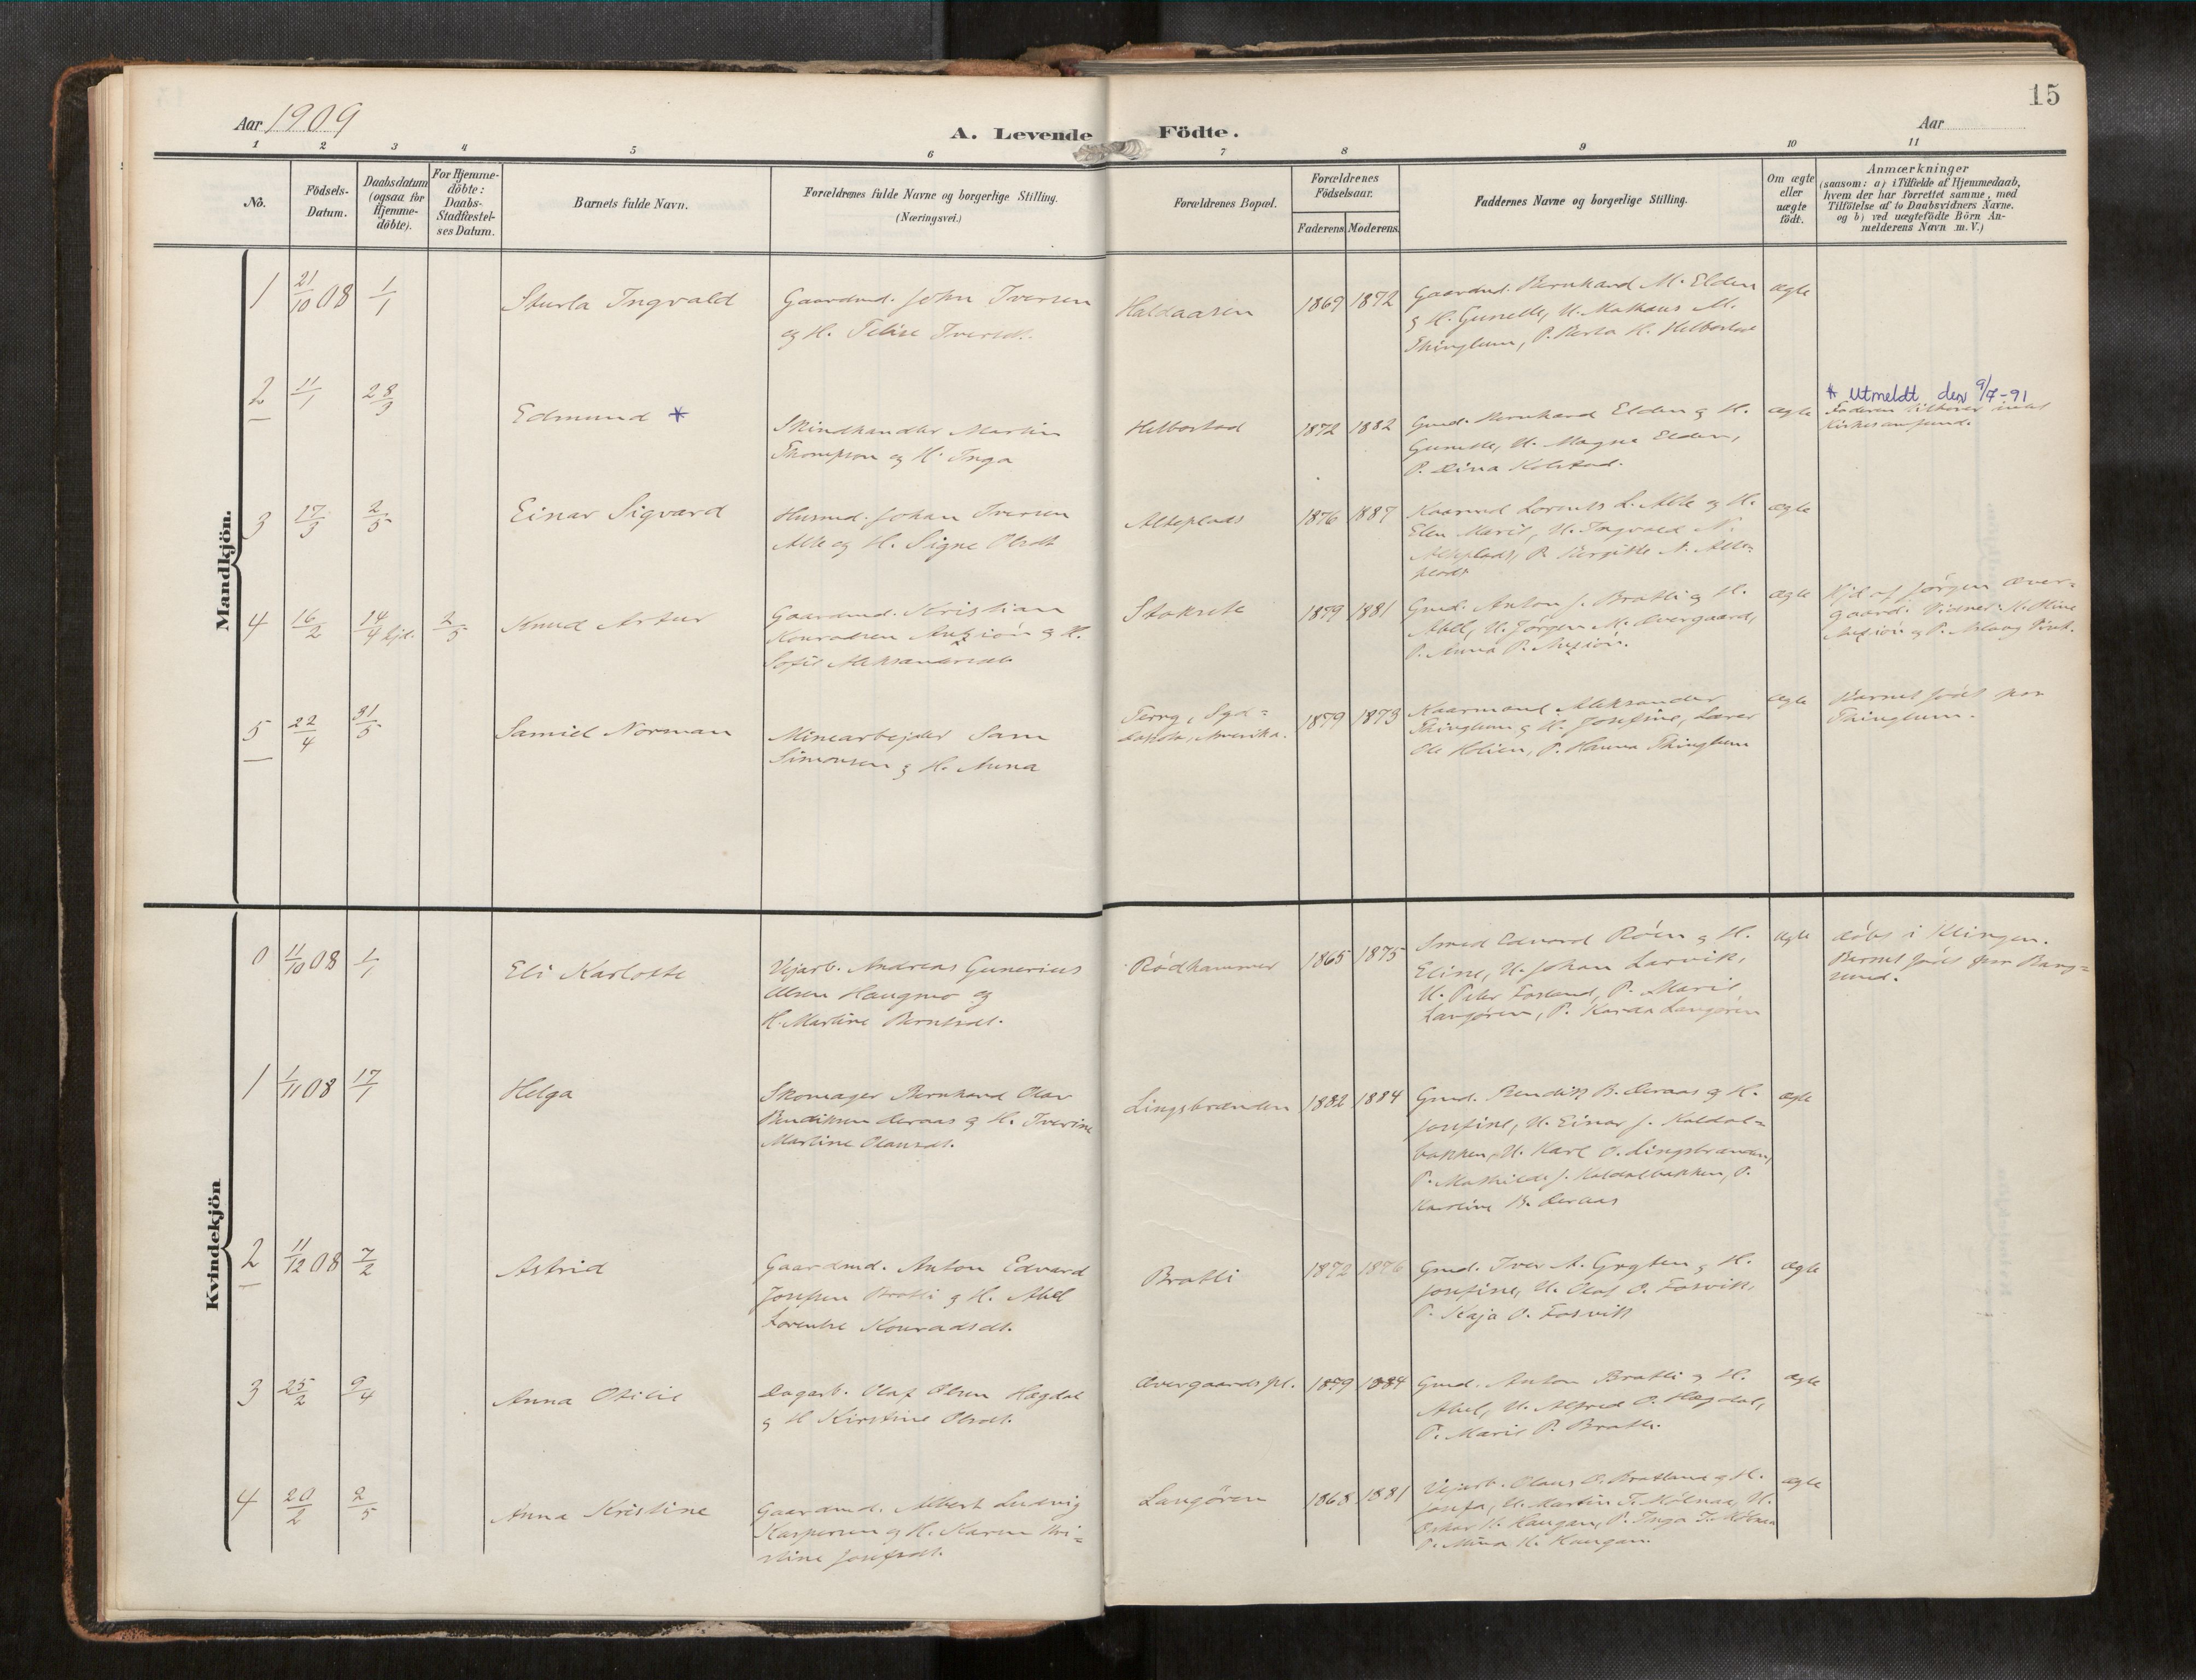 15
Aar 1909
A. Levende Födte.
Aar
1 2 3 4 5 6 7 8 9 10 11
No.
Födsels-
Datum.
Daabsdatum
(ogsaa for
Hjemme-
döbte).
For Hjemme-
döbte:
Daabs-
Stadfæstel-
ses Datum.
Barnets fulde Navn.
Forældrenes fulde Navne og borgerlige Stilling.
(Næringsvei.)
Forældrenes Bopæl.
Forældrenes
Födselsaar.
Faderens
Moderens
Faddernes Navne og borgerlige Stilling.
Om ægte
eller
uægte
födt.
Anmærkninger
(saasom: a) i Tilfælde af Hjemmedaab,
hvem der har forrettet samme, med
Tilföielse af to Daabsvidners Navne,
og b) ved uægtefödte Börn An-
melderens Navn m. V.)
Mandkjön.
1
21/10 08
1/1
Sturla Ingvald
Gaardmd. John Iversen
og H.
Haldaasen
1869 1872
Gaardmd. Bernhard M. Elden
& H. Gunelle, U. M.
Thinglum, P. Berta H. Helbostad
ægte
2
11/1
28/3
Edmund *
Skindhandler Martin
Thompson og H. Inga
Helbostad
1872 1882
Gmd. Bernhard Elden & H.
Gunelle, U. Magne Elden,
P. Lina Kolstad.
ægte
* Utmeldt den 9/7-91
Faderen tilhører intet
Kirkesamfund.
3
17/3
2/5
Einar Sigvard
Husmd. Johan Iversen
Alte og H. Signe Olsdt
Alteplads
1876 1887
Kaarmd Lorents L. Alte og H.
Elen Marie, U. Ingvald N.
Alteplads, P. Birgitte N. Alte-
plads
ægte
4
16/2
14/4 hjd.
2/5
Knud Artur
Gaardmd. Kristian
Konradsen Anzión & H.
Sofie Aleksandersdt.
Stoksete
1879 1881
Gmd. Anton J. Bratli & H.
Abel, U. Jörgen M. Overgaard,
P. Anna P. Anzión.
ægte
Hjd af Jörgen Over-
gaard. Vidner: H. Oline
Anzión & P.
5
22/4
31/5
Samiel Norman
Minearbejder Sam
Simonsen & H. Anna
Terry, Syd-
dakota, Amerika.
1879 1873
Kaarmand Aleksander
Thinglum & H. Josefine, Lærer
Ole Holien, P. Hanna Thinglum
ægte
Barnet födt paa
Thinglum.
Kvindekjön
0
11/10 08
1/1
Eli Karlotte
Vejarb. Andreas Gunerius
Olsen Haugmo og
H. Martine Berntsdt.
Rödhammer
1865 1875
Smed Edvard Röen & H.
Eline, U. Johan Larvik,
U. Peter Fosland, P. Marie
Langören, P. Karda Langören
ægte
döbt i Klingen.
Barnet födt paa Bang-
sund.
1
1/11 08
17/1
Helga
Skomager Bernhard Olav
Bendiksen Deraas & H. Iverine
Martine Olausdt.
Lingsbranden
1882 1884
Gmd. Bendik B. Deraas & H.
Josefine, U. Einar J. Kaldal-
bakken, U. Karl O. Lingsbranden,
P. Mathilde J. Kaldalbakken, P.
Karoline B. Deraas
ægte
2
11/12 08
7/2
Astrid
Gaardmd. Anton Edvard
Josefsen Bratli & H. Abel
Lorentse Konradsdt.
Bratli
1872 1876
Gmd. Iver A. Grytten & H.
Josefine, U. Olaf O. Fosvik,
P. Kaja O. Fosvik
ægte
3
25/2
9/4
Anna Otilie
Dagarb. Olaf Olsen Hægdal
& H Kirstine Olsdt.
Overgaardspl.
1879 1884
Gmd. Anton Bratli & H.
Abel, U. Alfred O. Hægdal,
P. Marie P. Bratli.
ægte
4
20/2
2/5
Anna Kristine
Gaardmd. Albert Ludvig
Kaspersen & H. Karen Kri-
stine Josefsdt.
Langören
1868 1881
Vejarb. Olaus O. Bratland & H.
Josefa, U. Martin T. Hölnaa, U.
Oskar H. Haugan, P. Inga T. Hölnaa
P. Mina H. Haugan.
ægte